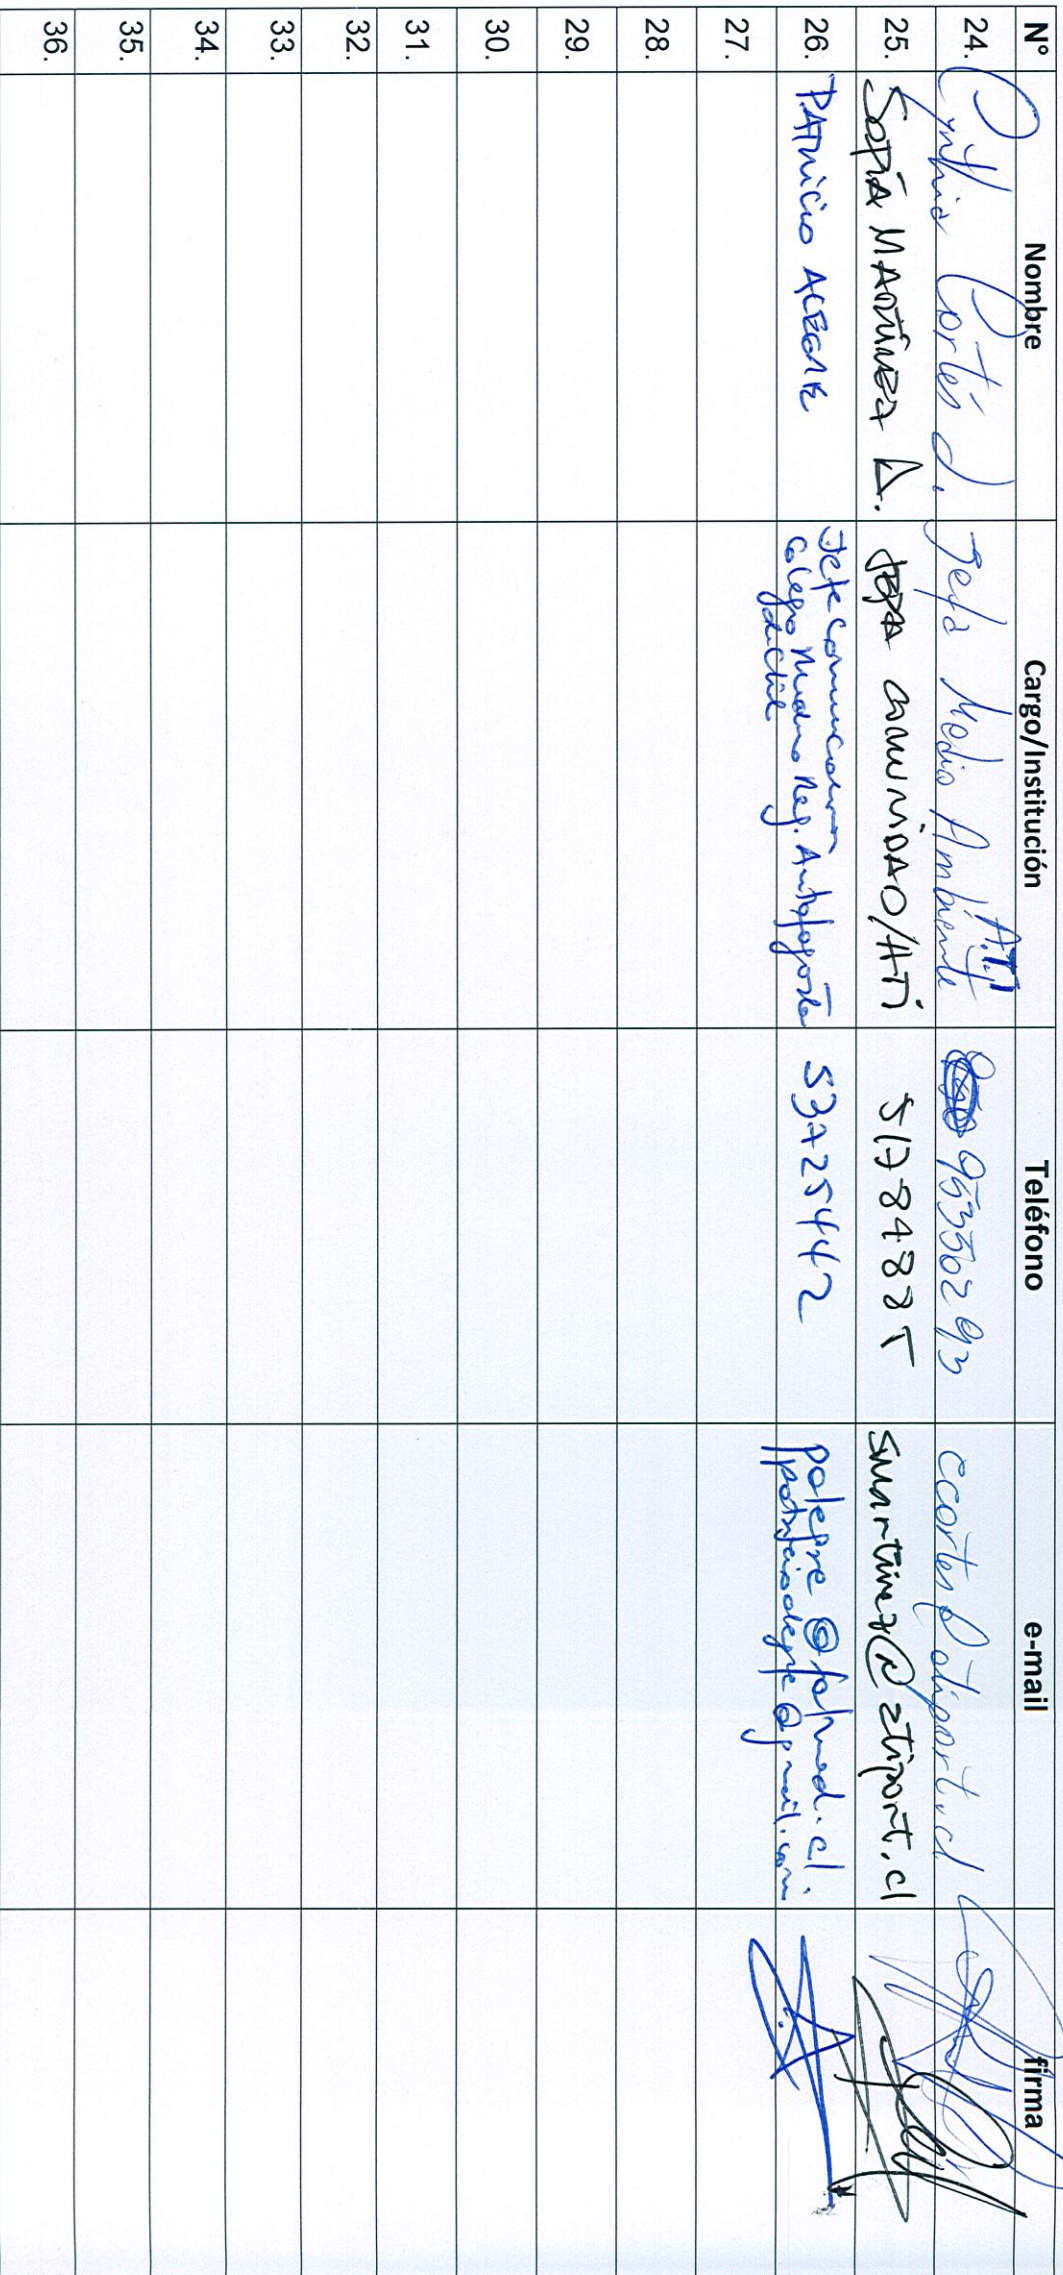 N° Nombre Cargo/Institución Teléfono e-mail firma
24. Cynthia Cortés d. Jefa Medio Ambiente A.T.I 9533502 93 ccortes@atiport.cl
25. SOFÍA MARTÍNEZ A. JEFA COMUNIDAD/ATI 51784885 smartinez@atiport.cl
26. PATRICIO ALEGRE Jefe Comunicaciones 53725442 palegre@fatmed.cl
Colegio Médico Reg. Antofagasta patricioalegre@gmail.com
de Chile
27.
28.
29.
30.
31.
32.
33.
34.
35.
36.